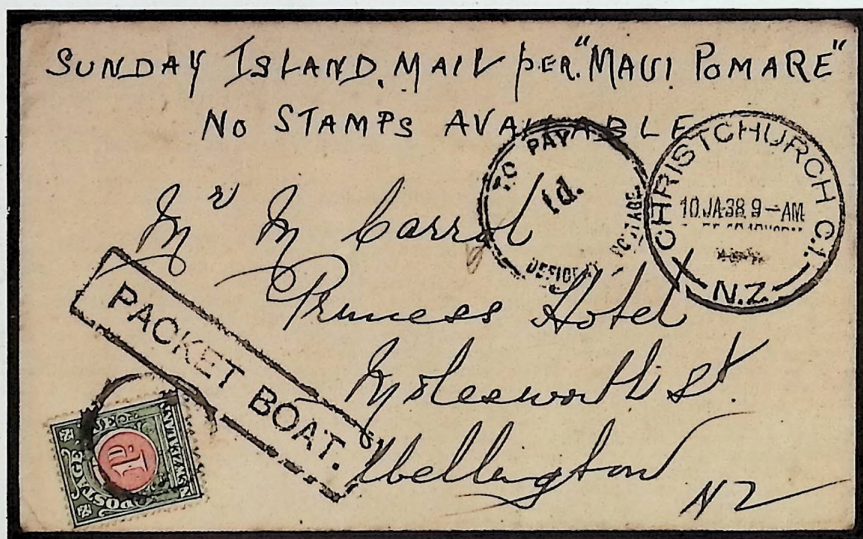 SUNDAY ISLAND. MAIL per. "MAUI POMARE"
NO STAMPS AVAILABLE
TO PAY
1d.
DEFICIENT POSTAGE
CHRISTCHURCH C.1.
10 JA 38 9-AM
N.Z.
Mr M Carrol
Princess Hotel
Molesworth St.
Wellington
NZ
PACKET BOAT.
NEW ZEALAND
1D
POSTAGE DUE
N Z